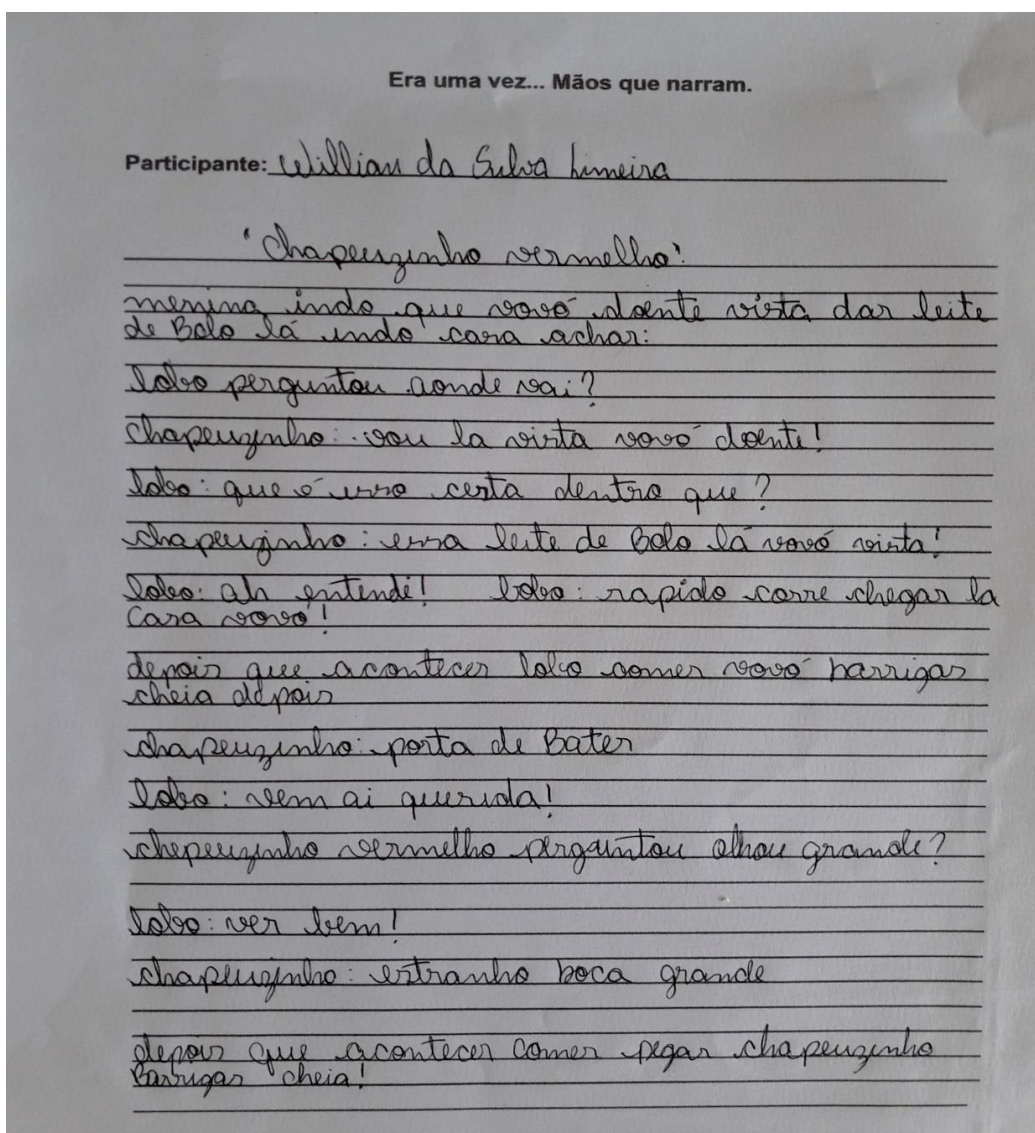 Era uma vez... Mãos que narram.
Participante: Willian da Silva Limeira
"Chapeuzinho vermelho".
menina indo que vovó doente vista dar leite
de Bolo lá indo casa achar:
lobo perguntou aonde vai?
chapeuzinho: vou la vista vovó doente!
lobo: que é isso cesta dentro que?
chapeuzinho: essa leite de Bolo lá vovó vista!
lobo: ah entendi! lobo: rapido corre chegar la
Casa vovó!
depois que acontecer lobo comer vovó barrigas
cheia depois
chapeuzinho: porta de Bater
lobo: vem ai querida!
chepeuzinho vermelho pergauntou olhou grande?
lobo: ver bem!
chapeuzinho: estranho boca grande
depois que acontecer comer pegar chapeuzinho
Barrigas cheia!